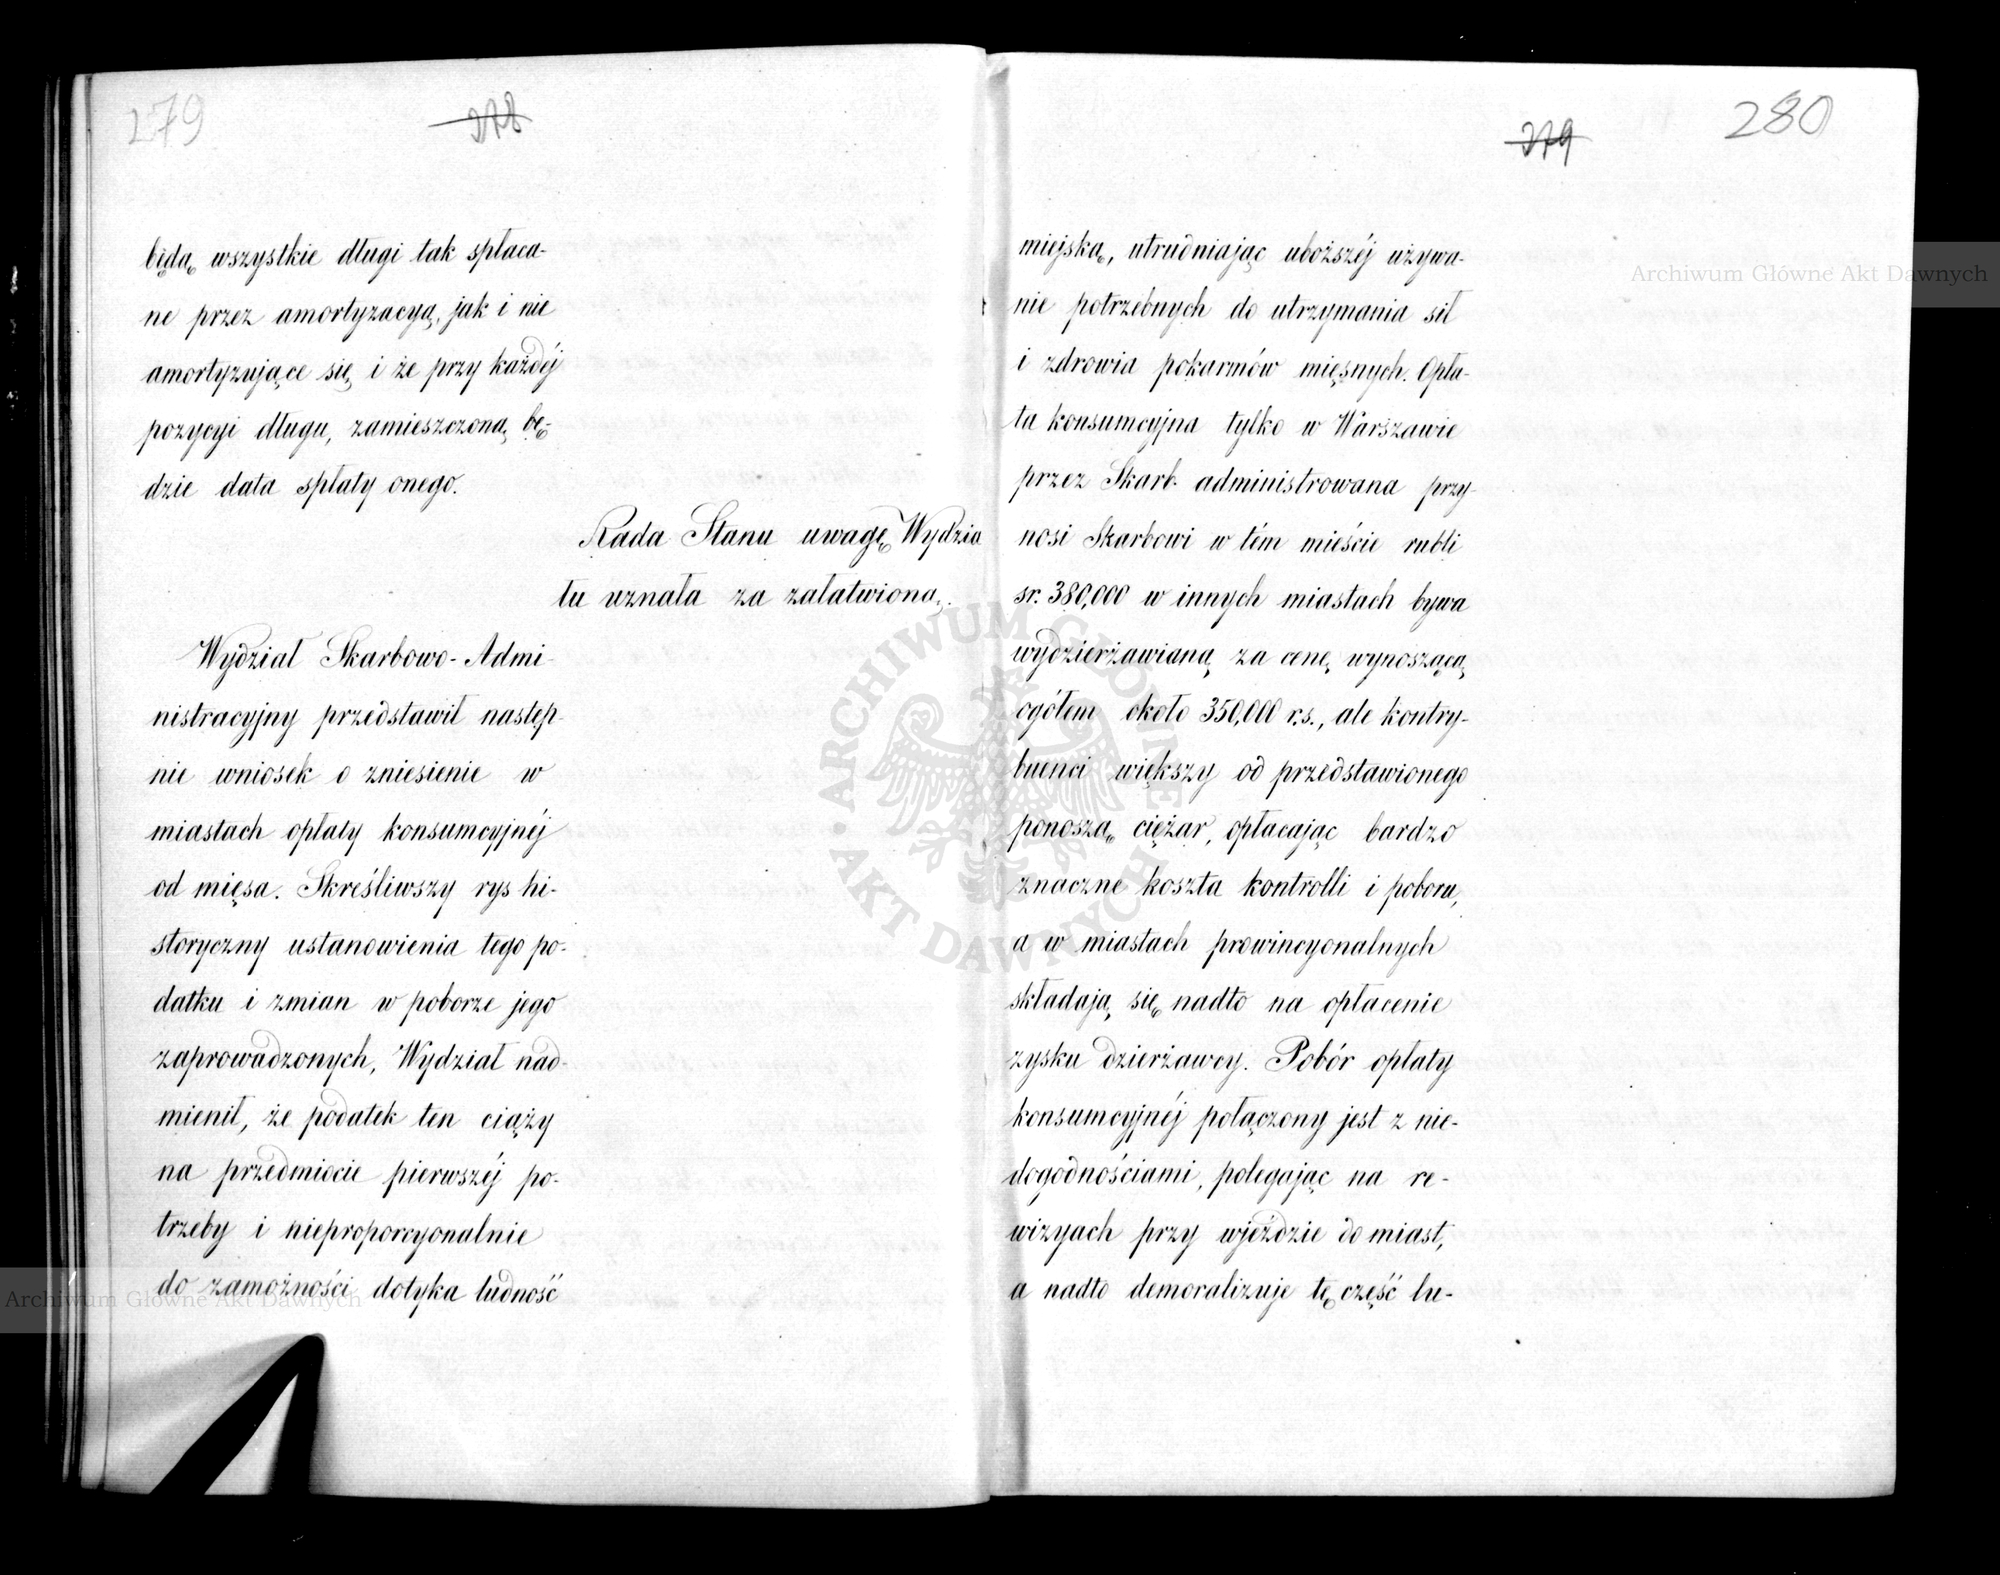 279
278
będą wszystkie długi tak spłaca-
ne przez amortyzacyą, jak i nie
amortyzujące się i że przy każdéj
pozycyi długu, zamieszczoną bę-
dzie data spłaty onego.
Rada Stanu uwagę Wydzia
łu uznała za załatwioną.
Wydział Skarbowo-Admi-
nistracyjny przedstawił następ-
nie wniosek o zniesienie w
miastach opłaty konsumcyjnéj
od mięsa. Skreśliwszy rys hi-
storyczny ustanowienia tego po-
datku i zmian w poborze jego
zaprowadzonych, Wydział nad-
mienił, że podatek ten ciąży
na przedmiocie pierwszéj po-
trzeby i nieproporcyonalnie
do zamożności dotyka ludność
279
280
miejską, utrudniając uboższéj używa-
nie potrzebnych do utrzymania sił
i zdrowia pokarmów mięsnych. Opła-
ta konsumcyjna tylko w Warszawie
przez Skarb administrowana przy-
nosi Skarbowi w tém mieście rubli
sr. 380,000 w innych miastach bywa
wydzierżawianą za cenę wynoszącą
ogółem około 350,000 r.s., ale kontry-
buenci większy od przedstawionego
ponoszą ciężar, opłacając bardzo
znaczne koszta kontrolli i poboru,
a w miastach prowincyonalnych
składają się nadto na opłacenie
zysku dzierżawcy. Pobór opłaty
konsumcyjnéj połączony jest z nie-
dogodnościami, polegając na re-
wizyach przy wjeździe do miast,
a nadto demoralizuje tę część lu-
Archiwum Główne Akt Dawnych
Archiwum Główne Akt Dawnych
ARCHIWUM GŁÓWNE • AKT DAWNYCH •